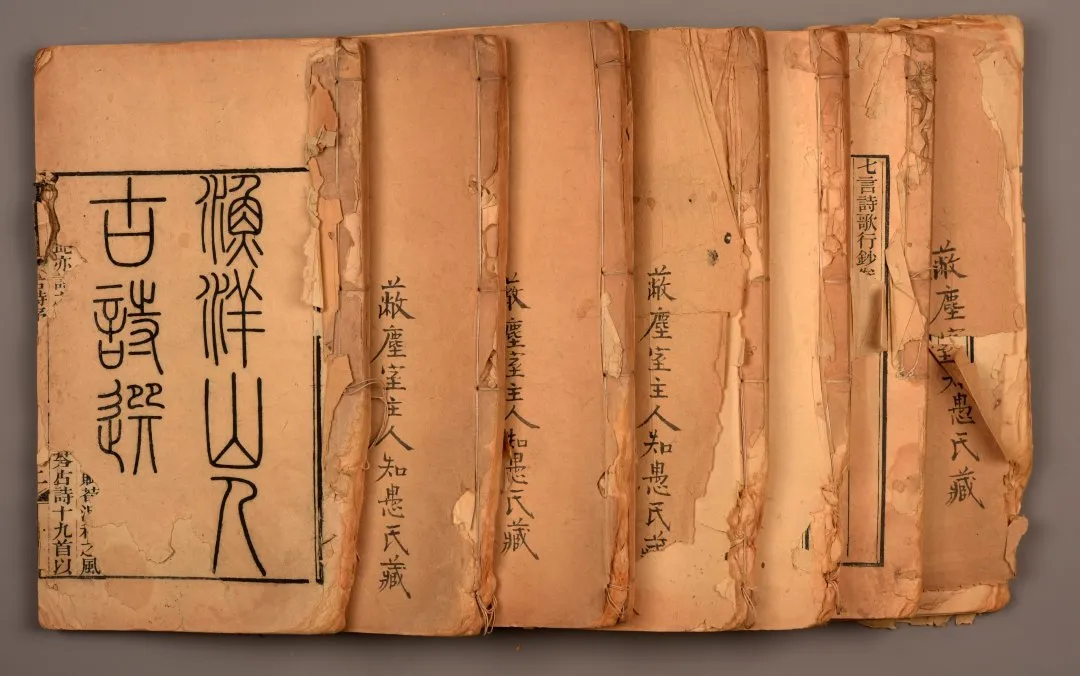 漁洋山人
古詩選
之風
古詩十九首以
蔽塵室主人知愚氏藏
蔽塵室主人知愚氏藏
蔽塵室主人知愚氏
七言詩歌行鈔
蔽塵室
愚氏藏